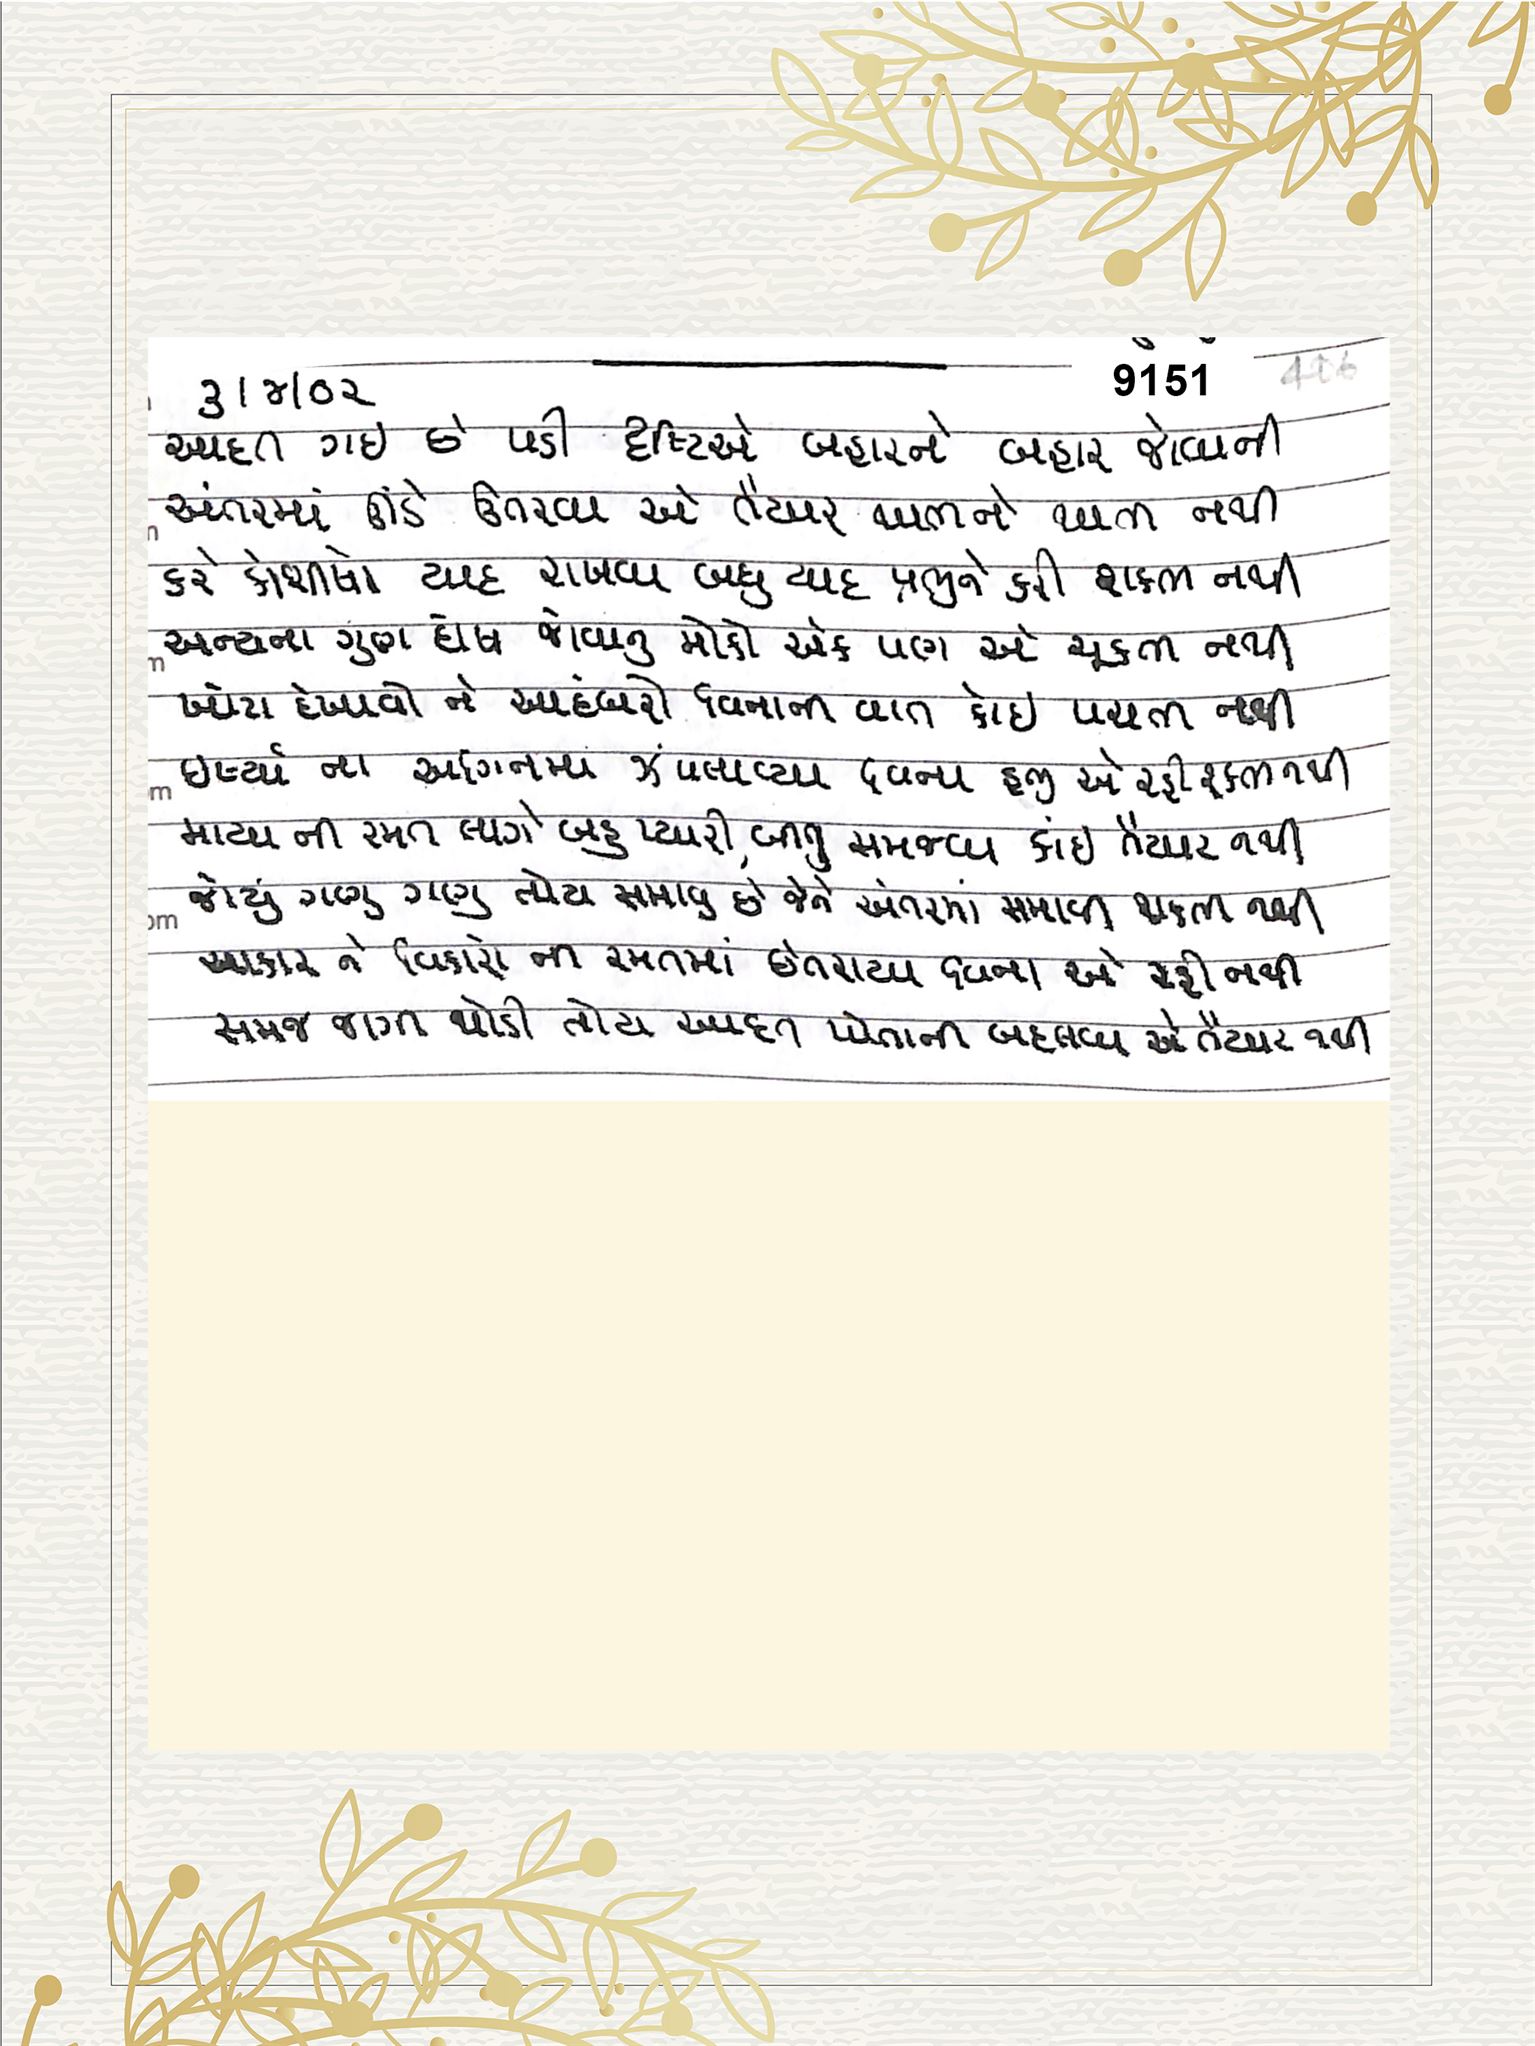 9151
૩/૪/૦૨
આદત ગઇ છે પડી દૃષ્ટિએ બહારને બહાર જોવાની
અંતરમાં ઊંડે ઉતરવા એ તૈયાર થાતાને થાતા નથી
કરે કોશીષો યાદ રાખવા બધુ યાદ પ્રભુને કરી શકતા નથી
અન્યના ગુણ દોષ જોવાનુ મોકો એક પણ એ ચૂકતા નથી
ખોટા દેખાવો ને આડંબરો વિનાની વાત કોઇ પચતી નથી
ઇર્ષ્યા ના અગ્નિમા ઝંપલાવ્યા વિના હજી એ રહી શકતા નથી
માયા ની રમત લાગે બહુ પ્યારી, બીજુ સમજવા કાંઇ તૈયાર નથી
જોયું ગણુ ગણુ તોય સમાવુ છે જેને અંતરમાં સમાવી શકતી નથી
આકાર ને વિકારો ની રમતમાં છેતરાયા વિના એ રહી નથી
સમજ જાગી થોડી તોય આદત પોતાની બદલવા એ તૈયાર નથી